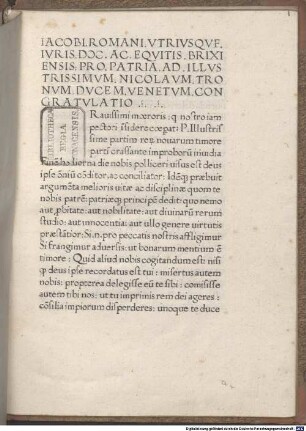 IACOBI.ROMANI.VTRIVSQVE.
IVRIS.DOC.AC.EQVITIS.BRIXI
ENSIS:PRO.PATRIA.AD.ILLVS
TRISSIMVM.NICOLAVM.TRO
NVM.DVCEM.VENETVM.CON
GRATVLATIO
Rauissimi mœroris: q nostro iam
pectori īsidere cœpat: P. Illustris
sime partim reꝝ nouarum timore
parti crassante improborū inuidia
hodierna die nobis polliceri uisus est deus
ipse oīniū cōditor, ac conciliator: Idēq; præbuit
argumēta melioris uitæ ac disciplinæ quom te
nobis patrē: patriæq; principē dedit: quo nemo
aut ꝓbitate: aut nobilitate: aut diuinarū rerum
studio: aut innocentia: aut ullo genere uirtutis
præstātior: Si.n.pro peccatis nostris affligimur
Si frangimur aduersis: ut bonarum mentium ē
timore: Quid aliud nobis cogitandum est: nisi
q deus ipse recordatus est tui: misertus autem
nobis: propterea delegisse eū te sibi: comisisse
autem tibi nos: ut tu imprimis rem dei ageres:
cōsilia impiorum disperderes: unoque te duce
BIBLIOTHECA
REGIA
MONACENSIS